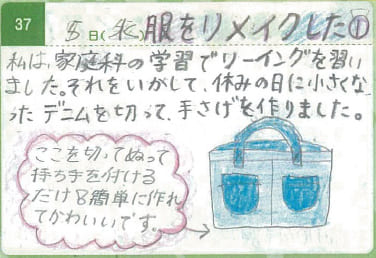 37
5日(水)服をリメイクした①
私は、家庭科の学習でソーイングを習い
ました。それをいかして、休みの日に小さくな
った デニムを切って、手さげを作りました。
ここを切ってぬって
持ち手を付ける
だけ 簡単に作れ
てかわいいです。